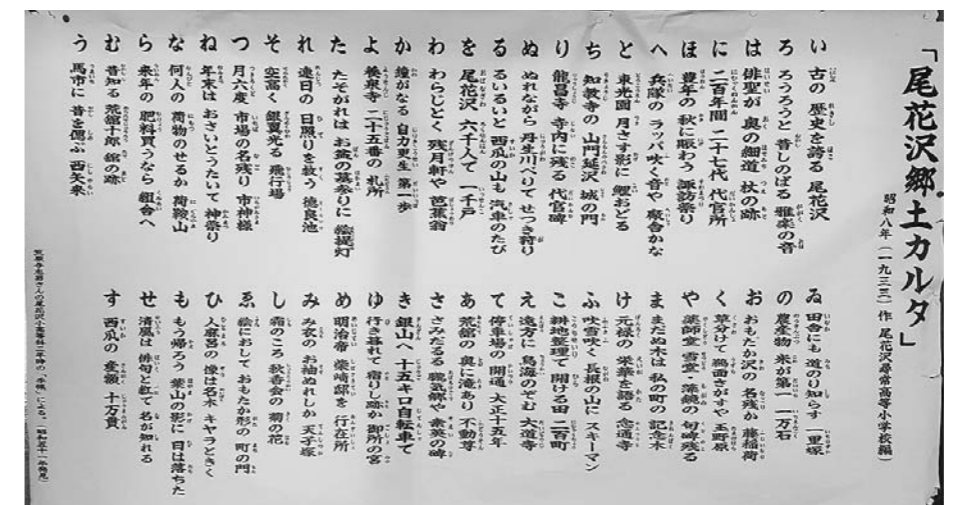 「尾花沢郷土カルタ」
昭和八年(一九三三)作 尾花沢尋常高等小学校編
い 古の 歴史を誇る 尾花沢
ろ ろうろうと 昔しのばる 雅楽の音
は 俳聖が 奥の細道 杖の跡
に 二百年間 二十七代 代官所
ほ 豊年の 秋に賑わう 諏訪祭り
へ 兵隊の ラッパ吹く音や 廠舎かな
と 東光園 月さす影に 鯉おどる
ち 知教寺の 山門延沢 城の門
り 龍昌寺 寺内に残る 代官碑
ぬ ぬれながら 丹生川べりで せつき狩り
る るいるいと 西瓜の山も 汽車のたび
を 尾花沢 六千人で 一千戸
わ わらじとく 残月軒や 芭蕉翁
か 鐘がなる 自力更生 第一歩
よ 養泉寺 二十五番の 札所
た たそがれは お盆の墓参りに 絵提灯
れ 連日の 日照りを救う 徳良池
そ 空高く 銀翼光る 飛行場
つ 月六度 市場の名残り 市神様
ね 年末は おさいとうたいて 神祭り
な 何人の 荷物のせるか 荷鞍山
ら 来年の 肥料買うなら 組合へ
む 昔知る 荒舘十郎 舘の跡
う 馬市に 昔を偲ぶ 西矢来
ゐ 田舎にも 道のり知らす 一里塚
の 農産物 米が第一 一万石
お おもたか沢の 名残か 藤稲荷
く 草分けて 鶉面きがすや 玉野原
や 薬師堂 雪堂・藻鏡の 句碑残る
ま まだぬ木は 私の町の 記念木
け 元禄の 栄華を語る 念通寺
ふ 吹雪吹く 長根の山に スキーマン
こ 耕地整理で 開ける田 二百町
え 遠方に 鳥海のぞむ 大道寺
て 停車場の 開通 大正十五年
あ 荒舘の 奥に滝あり 不動尊
さ さみだるる 歌気郷や 素英の碑
き 銀山へ 十五キロ 自転車で
ゆ 行き暮れて 宿りし跡か 御所の宮
め 明治帝 柴崎邸を 行在所
み み衣の お袖ぬれしか 天子塚
し 霜のころ 秋香会の 菊の花
ゑ 絵におして おもたか形の 町の門
ひ 人麿呂の 像は名木 キャラときく
も もう帰ろう 葉山の影に 日は落ちた
せ 清風は 俳句と紅で 名が知れる
す 西瓜の 産額 十万貫